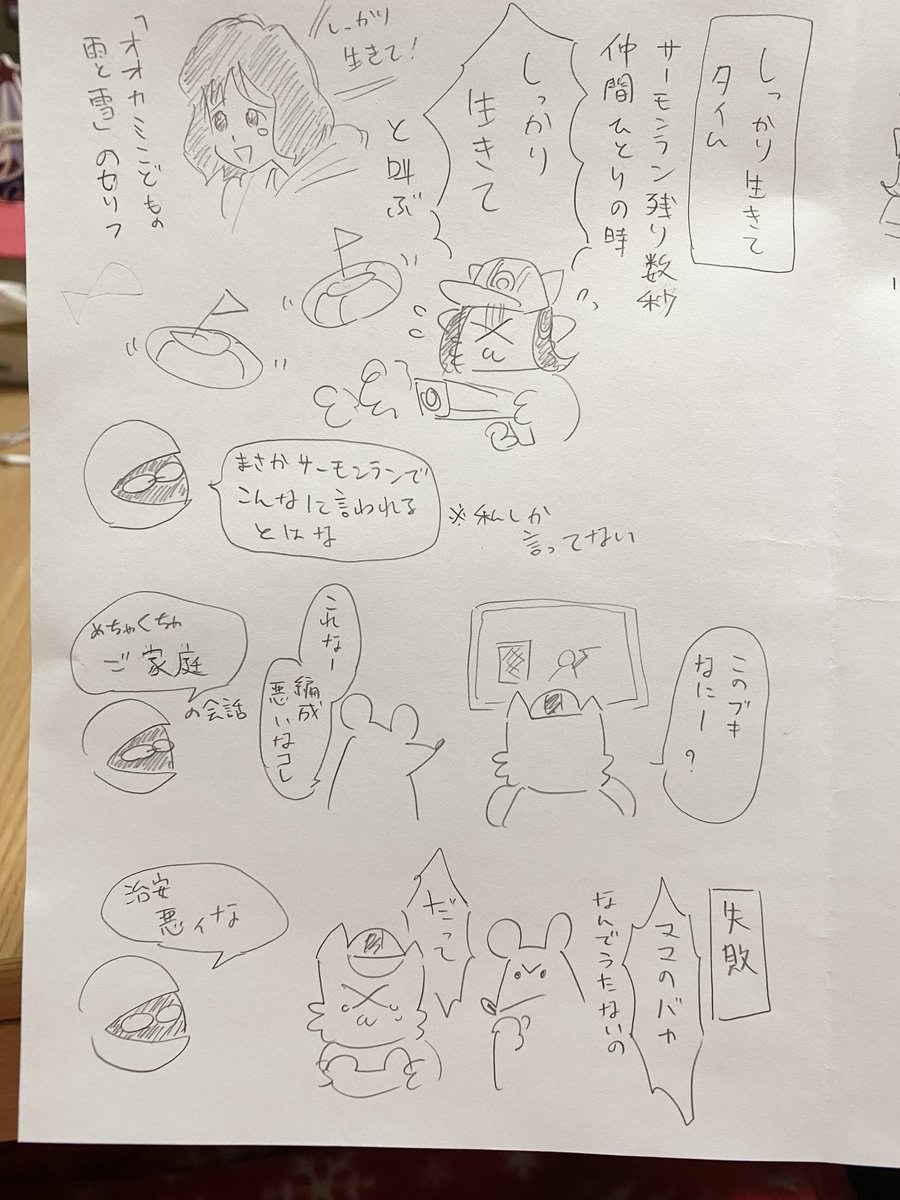 しっかり生きて
タイム
サーモンラン残り数秒
仲間ひとりの時
しっかり
生きて
と叫ぶ
しっかり
生きて!
「オオカミこどもの
雨と雪」のセリフ
まさかサーモンランで
こんなに言われる
とはな
※私しか
言ってない
このブキ
なにー?
これなー
編成
悪いなコレ
めちゃくちゃ
ご家庭
の会話
失敗
ママのバカ
なんでうたないの
だって
治安
悪ィな